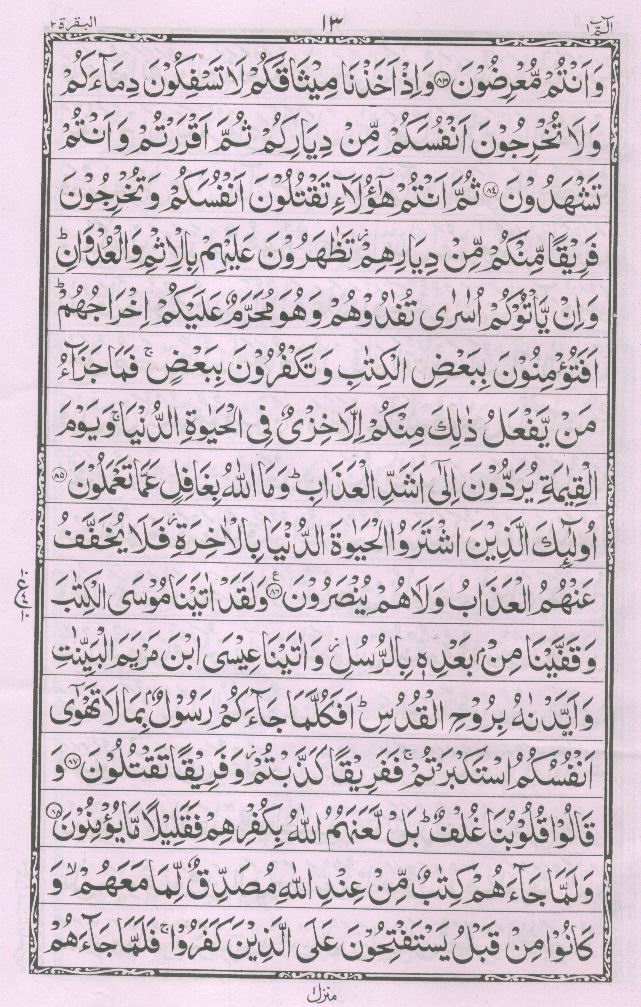 الٓمّٓ ١ ١٣ البقرة ٢
وَاَنْتُمْ مُّعْرِضُوْنَ ﴿۸۳﴾ وَاِذْ اَخَذْنَا مِيْثَاقَكُمْ لَا تَسْفِكُوْنَ دِمَآءَكُمْ
وَلَا تُخْرِجُوْنَ اَنْفُسَكُمْ مِّنْ دِيَارِكُمْ ثُمَّ اَقْرَرْتُمْ وَاَنْتُمْ
تَشْهَدُوْنَ ﴿۸۴﴾ ثُمَّ اَنْتُمْ هٰٓؤُلَآءِ تَقْتُلُوْنَ اَنْفُسَكُمْ وَتُخْرِجُوْنَ
فَرِيْقًا مِّنْكُمْ مِّنْ دِيَارِهِمْ ز تَظٰهَرُوْنَ عَلَيْهِمْ بِالْاِثْمِ وَالْعُدْوَانِ ط
وَاِنْ يَّاْتُوْكُمْ اُسٰرٰى تُفٰدُوْهُمْ وَهُوَ مُحَرَّمٌ عَلَيْكُمْ اِخْرَاجُهُمْ ط
اَفَتُؤْمِنُوْنَ بِبَعْضِ الْكِتٰبِ وَتَكْفُرُوْنَ بِبَعْضٍ ج فَمَا جَزَآءُ
مَنْ يَّفْعَلُ ذٰلِكَ مِنْكُمْ اِلَّا خِزْىٌ فِى الْحَيٰوةِ الدُّنْيَا ج وَيَوْمَ
الْقِيٰمَةِ يُرَدُّوْنَ اِلٰٓى اَشَدِّ الْعَذَابِ ط وَمَا اللّٰهُ بِغَافِلٍ عَمَّا تَعْمَلُوْنَ ﴿۸۵﴾
اُولٰٓئِكَ الَّذِيْنَ اشْتَرَوُا الْحَيٰوةَ الدُّنْيَا بِالْاٰخِرَةِ ز فَلَا يُخَفَّفُ
عَنْهُمُ الْعَذَابُ وَلَا هُمْ يُنْصَرُوْنَ ﴿۸۶﴾ ع وَلَقَدْ اٰتَيْنَا مُوْسَى الْكِتٰبَ
وَقَفَّيْنَا مِنْۢ بَعْدِهٖ بِالرُّسُلِ ز وَاٰتَيْنَا عِيْسَى ابْنَ مَرْيَمَ الْبَيِّنٰتِ
وَاَيَّدْنٰهُ بِرُوْحِ الْقُدُسِ ط اَفَكُلَّمَا جَآءَكُمْ رَسُوْلٌۢ بِمَا لَا تَهْوٰٓى
اَنْفُسُكُمُ اسْتَكْبَرْتُمْ ج فَفَرِيْقًا كَذَّبْتُمْ ز وَفَرِيْقًا تَقْتُلُوْنَ ﴿۸۷﴾ وَ
قَالُوْا قُلُوْبُنَا غُلْفٌ ط بَلْ لَّعَنَهُمُ اللّٰهُ بِكُفْرِهِمْ فَقَلِيْلًا مَّا يُؤْمِنُوْنَ ﴿۸۸﴾
وَلَمَّا جَآءَهُمْ كِتٰبٌ مِّنْ عِنْدِ اللّٰهِ مُصَدِّقٌ لِّمَا مَعَهُمْ لا وَ
كَانُوْا مِنْ قَبْلُ يَسْتَفْتِحُوْنَ عَلَى الَّذِيْنَ كَفَرُوْا ج فَلَمَّا جَآءَهُمْ
منزل